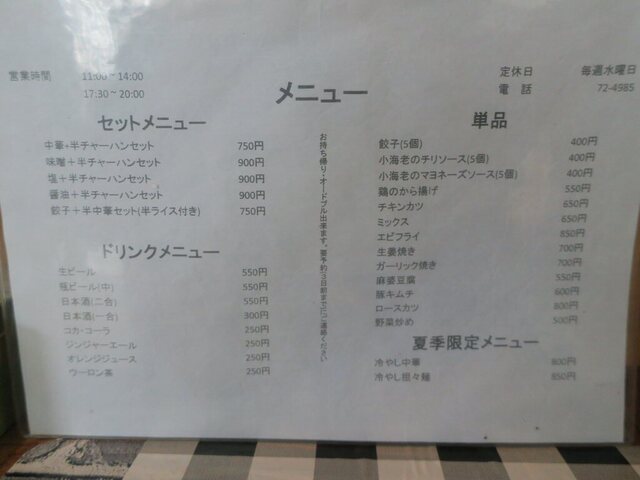 営業時間 11:00～14:00
17:30～20:00
メニュー
定休日 毎週水曜日
電話 72-4985
セットメニュー
中華+半チャーハンセット 750円
味噌+半チャーハンセット 900円
塩+半チャーハンセット 900円
醤油+半チャーハンセット 900円
餃子+半中華セット(半ライス付き) 750円
ドリンクメニュー
生ビール 550円
瓶ビール(中) 550円
日本酒(二合) 550円
日本酒(一合) 300円
コカ・コーラ 250円
ジンジャーエール 250円
オレンジジュース 250円
ウーロン茶 250円
お持ち帰り・オードブル出来ます。要予約3日前までにご連絡ください
単品
餃子(5個) 400円
小海老のチリソース(5個) 400円
小海老のマヨネーズソース(5個) 400円
鶏のから揚げ 550円
チキンカツ 650円
ミックス 650円
エビフライ 850円
生姜焼き 700円
ガーリック焼き 700円
麻婆豆腐 550円
豚キムチ 600円
ロースカツ 800円
野菜炒め 500円
夏季限定メニュー
冷やし中華 800円
冷やし担々麺 850円